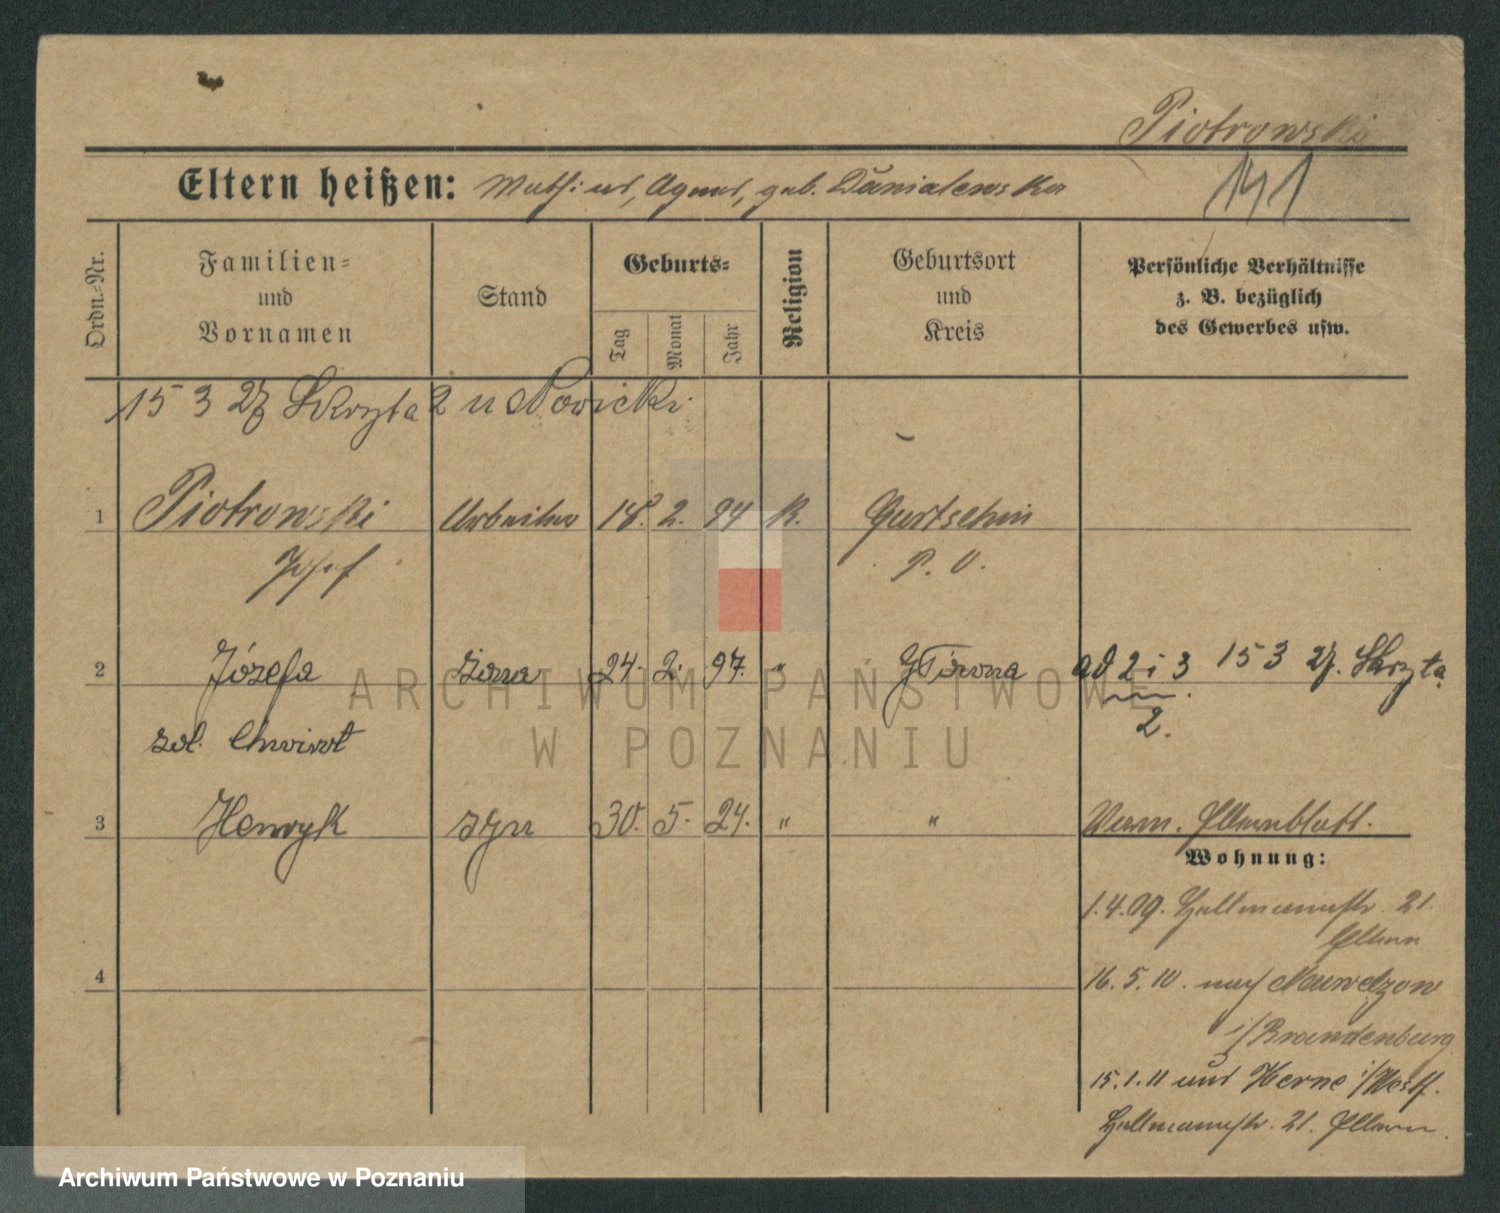 Piotrowski
Eltern heißen: Mathias, Agnes, geb. Danialewska
141
Ordn.-Nr.
Familien-
und
Vornamen
Stand
Geburts-
Tag
Monat
Jahr
Religion
Geburtsort
und
Kreis
Persönliche Verhältnisse
z. B. bezüglich
des Gewerbes usw.
15 3 27 Skryta 2 u Nowicki
1 Piotrowski Arbeiter 18. 2. 94 K. Gurtschin
Josef P. O.
2 Józefa żona 24. 2. 97. " Główna ad 2 i 3 15 3 27. Skryta
2.
zd. Chwirot
3 Henryk syn 30. 5. 24. " " Verm. Elternblatt.
Wohnung:
1.4.09. Hallmannstr. 21.
Eltern
4
16. 5. 10. nach
i/Brandenburg
15.1.11 aus Herne i/Westf.
Hallmannstr. 21. Eltern.
ARCHIWUM PAŃSTWOWE
W POZNANIU
Archiwum Państwowe w Poznaniu